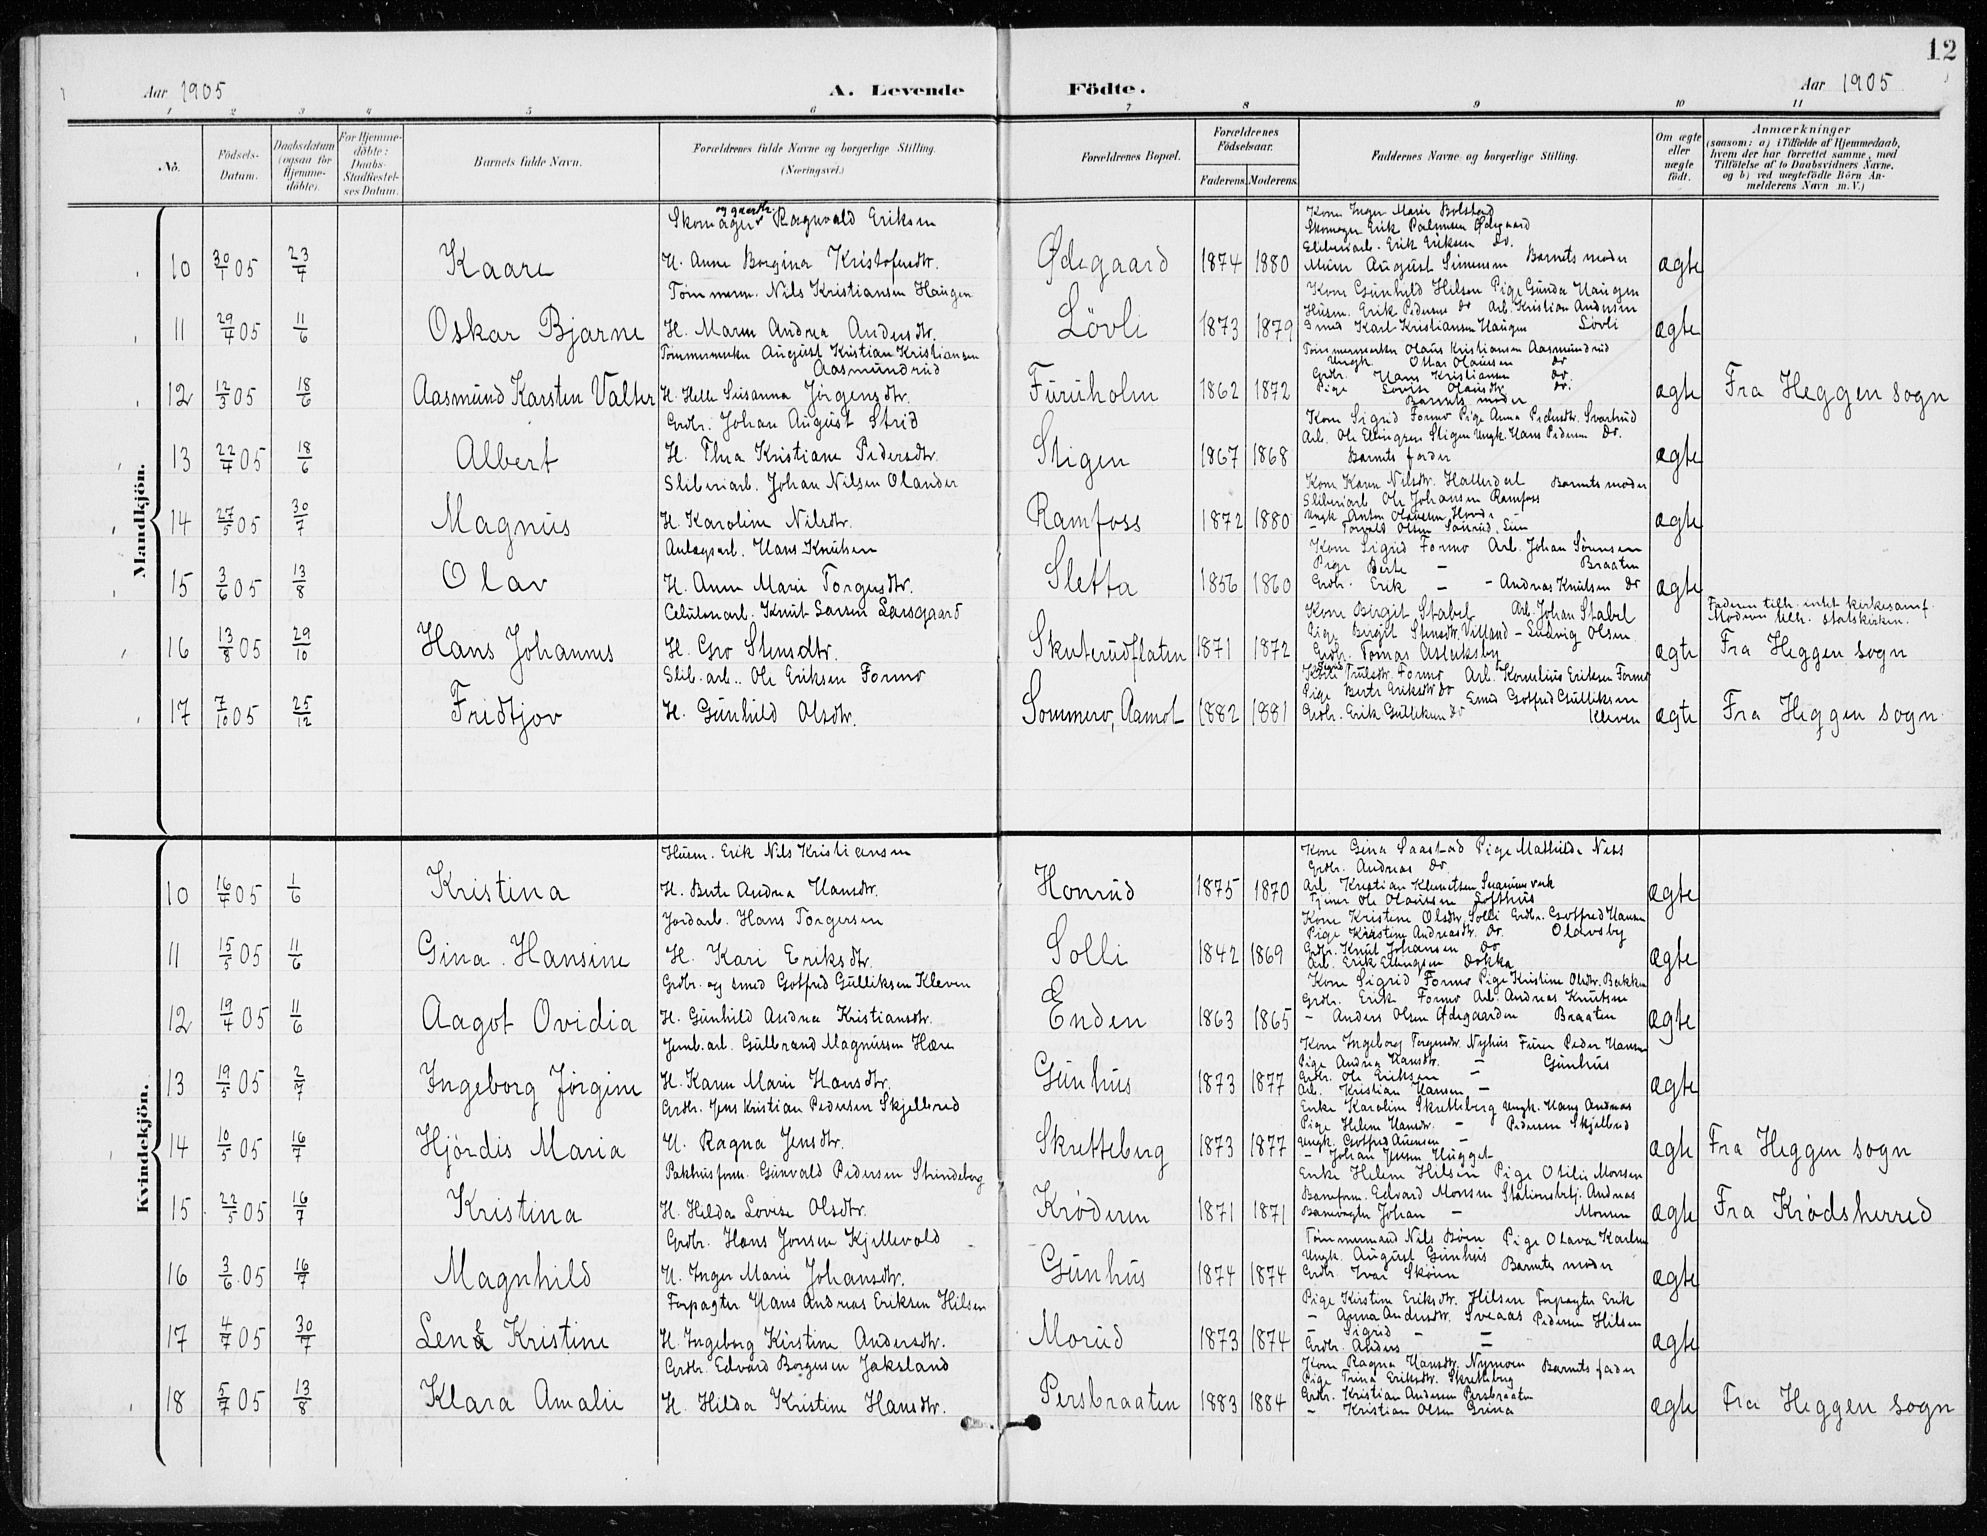 12
Aar 1905
A. Levende Födte.
Aar 1905
1 2 3 4 5 6 7 8 9 10 11
No.
Födsels-Datum.
Daabsdatum (ogsaa for Hjemme-döbte).
For Hjemme-döbte: Daabs-Stadfæstel-ses Datum.
Barnets fulde Navn.
Forældrenes fulde Navne og borgerlige Stilling. (Næringsvei.)
Forældrenes Bopæl.
Forældrenes Födselsaar.
Faderens. Moderens.
Faddernes Navne og borgerlige Stilling.
Om ægte eller uægte födt.
Anmærkninger
(saasom: a) i Tilfælde af Hjemmedaab, hvem der har forrettet samme, med Tilföielse af to Daabsvidners Navne. og b) ved uægtefödte Börn An-melderens Navn m. V.)
Mandkjön.
og gaardbr.
Skomager Ragnvald Eriksen
Kone Inger Marie Bolstad
Skomager Erik Paulsen Ødegaard
Sliberiarb. Erik Eriksen do.
10 30/1 05 23/4 Kaare H. Anne Borgina Kristofersdtr. Ødegaard 1874 1880 Murer August Simensen Barnets moder ægte
Tømmerm. Nils Kristiansen Haugen
Kone Gunhild Hilsen Pige Gunda Haugen
Husm. Erik Pedersen do Arb. Kristian Andersen
11 29/4 05 11/6 Oskar Bjarne H. Maren Andrea Andersdtr. Lövli 1873 1879 Smed Karl Kristiansen Haugen Lövli ægte
Tømmermerker August Kristian Kristiansen
Aasmundrud
Tømmermerker Olaus Kristiansen Aasmundrud
Ungk. Ottar Olausen do
Grdbr. Hans Kristiansen do.
12 12/3 05 18/6 Aasmund Karsten Valter H. Helle Susanna Jörgensdtr. Furuholm 1862 1872 Pige Lovise Olausdtr. do. ægte Fra Heggen sogn
Barnets moder
Grdbr. Johan August Strid
Kone Sigrid Formo Pige Anna Pedersdtr. Svartrud
Arb. Ole Ellingsen Stigen Ungk. Hans Pedersen do.
13 22/4 05 18/6 Albert H. Thea Kristiane Pedersdtr. Stigen 1867 1868 Barnets fader ægte
Sliberiarb. Johan Nilsen Olander
Kone Karen Nilsdtr. Hallerdal Barnets moder
Sliberiarb Ole Johansen Ramfoss
14 27/5 05 30/7 Magnus H. Karoline Nilsdtr. Ramfoss 1872 1880 Ungk Anton Olavesen Hovde ægte
Anlægsarb. Hans Knutsen
Kone Sigrid Formo Arb. Johan Sørensen
Pige Berte – Braaten
15 3/6 05 13/8 Olav H. Anne Marie Torgersdtr. Sletta 1856 1860 Grdbr. Erik – – Andreas Knutsen do ægte
Celulosearb. Knut Larsen Larsgaard
Kone Birgit Stabel Arb. Johan Stabel
Faderen tilh. intet kirkesamf.
Moderen tilh. statskirken.
Pige Birgit Stensdtr. Villand – Ludvig Olsen
16 13/8 05 29/10 Hans Johannes H. Gro Stensdtr. Skuterudflaten 1871 1872 Grdbr. Tomas Aslaksby ægte Fra Heggen sogn
Slib. arb. Ole Eriksen Formo
Kone Sigrid Trulsdtr. Formo Arb. Kornelius Eriksen Formo
Pige Berte Eriksdtr do Smed Gotfred Gulliksen
17 7/10 05 25/12 Fridtjov H. Gunhild Olsdtr. Sommero, Aamot 1882 1881 Grdbr. Erik Gulliksen do Kleven ægte Fra Heggen sogn
Kvindekjön.
Husm. Erik Nils Kristiansen
Kone Gina Saastad Pige Mathilde Ness
Grdbr. Andreas do.
10 16/4 05 1/6 Kristina H. Berte Andrea Hansdtr. Honrud 1875 1870 Arb. Kristian Klemetsen ægte
Tjener Ole Olausen Lofthus
Jordarb. Hans Torgersen
Kone Kristine Olsdtr. Solli Grdbr. Gotfred Hansen
Pige Kristine Andreasdtr. do. Olavsby
11 15/5 05 11/6 Gina Hansine H. Kari Eriksdtr. Solli 1842 1869 Grdbr. Knut Johansen do ægte
Arb. Erik Ellingsen Dokka
Grdbr. og smed Gotfred Gulliksen Kleven
Kone Sigrid Formo Pige Kristine Olsdtr. Bakken
Grdbr. Erik Formo Arb. Andreas Knutsen
12 19/4 05 11/6 Aagot Ovidia H. Gunhild Andrea Kristiansdtr. Enden 1863 1865 – Anders Olsen Ødegaarden Braaten ægte
Jernb. arb. Gulbrand Magnussen Hære
Kone Ingeborg Torgersdtr. Nyhus Furer Peder Hansen
Pige Andrea Hansdtr. – Gunhus
Grdbr. Ole Eriksen –
13 19/5 05 2/7 Ingeborg Jørgine H. Karen Marie Hansdtr. Gunhus 1873 1877 Arb. Kristian Hansen – ægte
Grdbr. Jens Kristian Pedersen Skjellerud
Enke Karoline Skretteberg Ungk. Hans Andreas
Pige Helene Hansdtr. – Pedersen Skjellerud
14 10/5 05 16/7 Hjördis Maria H. Ragna Jensdtr. Skretteberg 1873 1877 Ungk. Gotfred Auensen – ægte Fra Heggen sogn
– Johan Jensen Hugget
Pakhusform. Gunvald Pedersen Strindeberg
Enke Helene Hilsen Pige Otilie Monsen
Baneform. Edvard Monsen Stationsbtj. Andreas
15 22/5 05 16/7 Kristina H. Hilda Lovise Olsdtr. Krøderen 1871 1871 Banevogter Johan – Monsen ægte Fra Krødsherred
Grdbr. Hans Jonsen Kjellevold
Tømmermand Nils Bøen Pige Olava Karlsen
Ungk. August Gunhus Barnets moder
16 3/6 05 16/7 Magnhild H. Inger Marie Johansdtr. Gunhus 1874 1874 Grdbr. Ivar Skönn ægte
Forpagter Hans Andreas Eriksen Hilsen
Pige Kirstine Eriksdtr. Hilsen Forpagter Erik
– Anna Andersdtr. Sveaas Pedersen Hilsen
– Sigrid – –
17 4/7 05 30/7 Lene Kristine H. Ingeborg Kirstine Andersdtr. Morud 1873 1874 Grdbr. Anders – ægte
Grdbr. Edvard Borgersen Jaksland
Kone Ragna Hansdtr. Nymoen Barnets fader
Pige Trina Eriksdtr. Skretteberg
18 5/7 05 13/8 Klara Amalie H. Hilda Kristine Hansdtr. Persbraaten 1883 1884 Grdbr. Kristian Andersen Persbraaten ægte Fra Heggen sogn
– Kristian Olsen Brina